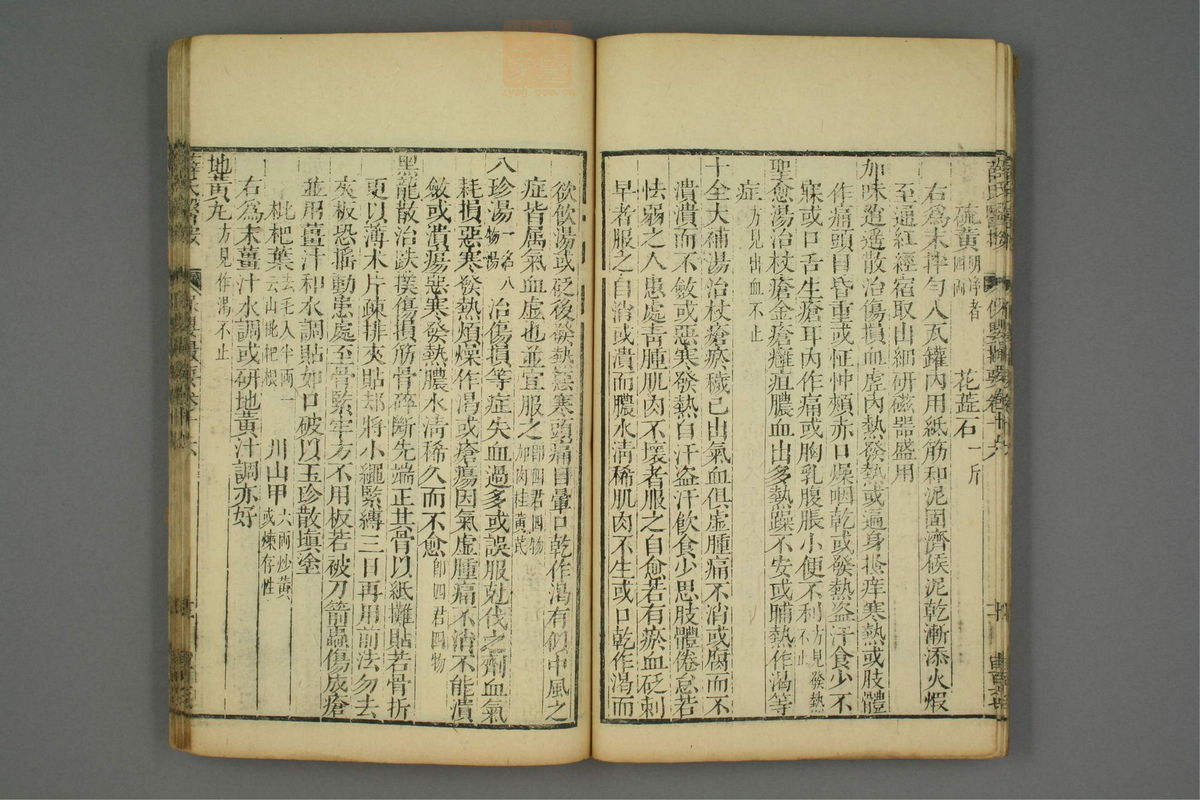 硫黃明淨者四兩　花蕋石一斤
右爲末拌勻入瓦罐內用紙筋和泥固濟候泥乾漸添火煆
至通紅經宿取出細研磁器盛用
加味逍遙散治傷損血虛內熱發熱或遍身搔痒寒熱或肢體
作痛頭目昏重或怔忡頰赤口燥咽乾或發熱盜汗食少不
寐或口舌生瘡耳內作痛或胸乳腹脹小便不利方見發熱不止
聖愈湯治杖瘡金瘡癰疽膿血出多熱躁不安或晡熱作渴等
症方見出血不止
十全大補湯治杖瘡瘀穢已出氣血俱虛腫痛不消或腐而不
潰潰而不斂或惡寒發熱自汗盜汗飲食少思肢體倦怠若
怯弱之人患處靑腫肌肉不壞者服之自愈若有瘀血砭刺
早者服之自消或潰而膿水淸稀肌肉不生或口乾作渴而
欲飲湯或砭後發熱惡寒頭痛目暈口乾作渴有似中風之
症皆属氣血虛也並宜服之卽四君四物加肉桂黃芪
八珍湯一名八物湯治傷損等症失血過多或誤服尅伐之劑血氣
耗損惡寒發熱煩燥作渴或瘡瘍因氣虛腫痛不潰不能潰
斂或潰瘍惡寒發熱膿水淸稀久而不愈卽四君四物
聖靈龍散治跌撲傷損筋骨碎斷先端正其骨以紙攤貼若骨折
更以薄木片疎排夾貼却將小繩緊縛三日再用前法勿去
夾板恐搖動患處至骨緊牢方不用板若破刀箭蟲傷成瘡
並用薑汁和水調貼如口破以玉珍散塡塗
枇杷葉去毛入半兩一云山枇杷根　川山甲六兩炒黃或煉存性
右爲末薑汁水調或研地黃汁調亦好
地黃丸方見作渴不止